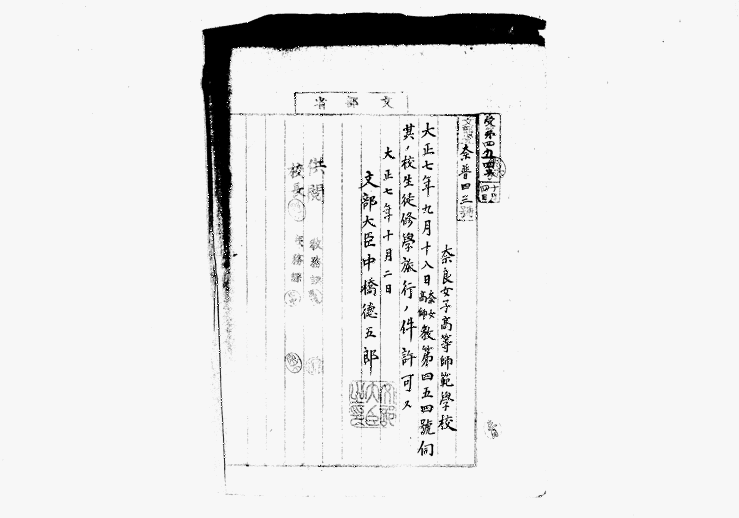 文部省
受第四五四号
十月四日
奈普四三號
奈良女子高等師範學校
大正七年九月十八日奈女高師教第四五四號伺
其ノ校生徒修學旅行ノ件許可ス
大正七年十月二日
文部大臣中橋德五郎
文部大臣之印
供閲
校長
教務課
庶務課